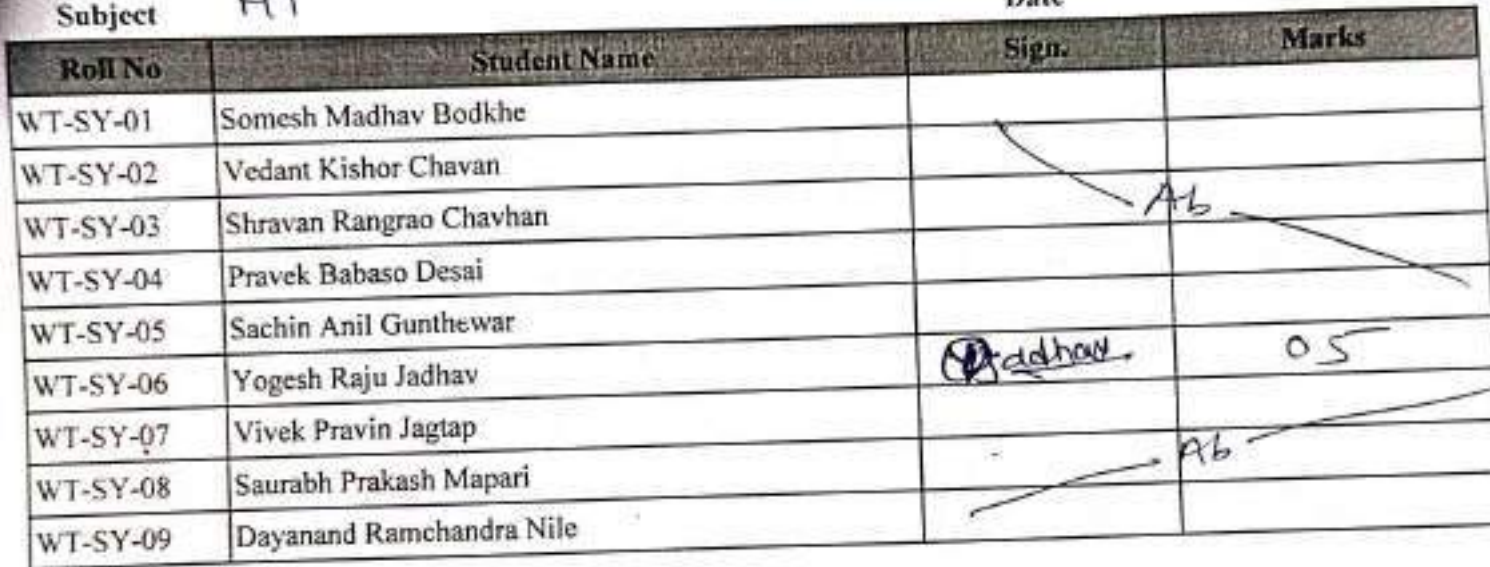 Subject Date
Roll No Student Name Sign. Marks
WT-SY-01 Somesh Madhav Bodkhe
WT-SY-02 Vedant Kishor Chavan
WT-SY-03 Shravan Rangrao Chavhan
Ab
WT-SY-04 Pravek Babaso Desai
WT-SY-05 Sachin Anil Gunthewar
WT-SY-06 Yogesh Raju Jadhav Jadhav 05
WT-SY-07 Vivek Pravin Jagtap
Ab
WT-SY-08 Saurabh Prakash Mapari
WT-SY-09 Dayanand Ramchandra Nile